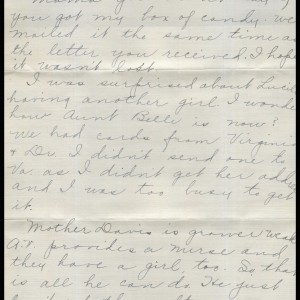 you got my box of candy. We
mailed it the same time as
the letter you received. I hope
it wasn't lost.
I was surprised about Lucile
having another girl I wonder
how Aunt Belle is now?
We had cards from Virginia
& Dr. I didn't send one to
Va. as I didn't get her address
and I was too busy to get
it.
Mother Davis is grower weak
A.V. provides a nurse and
they have a girl, too. So that
is all he can do. He just